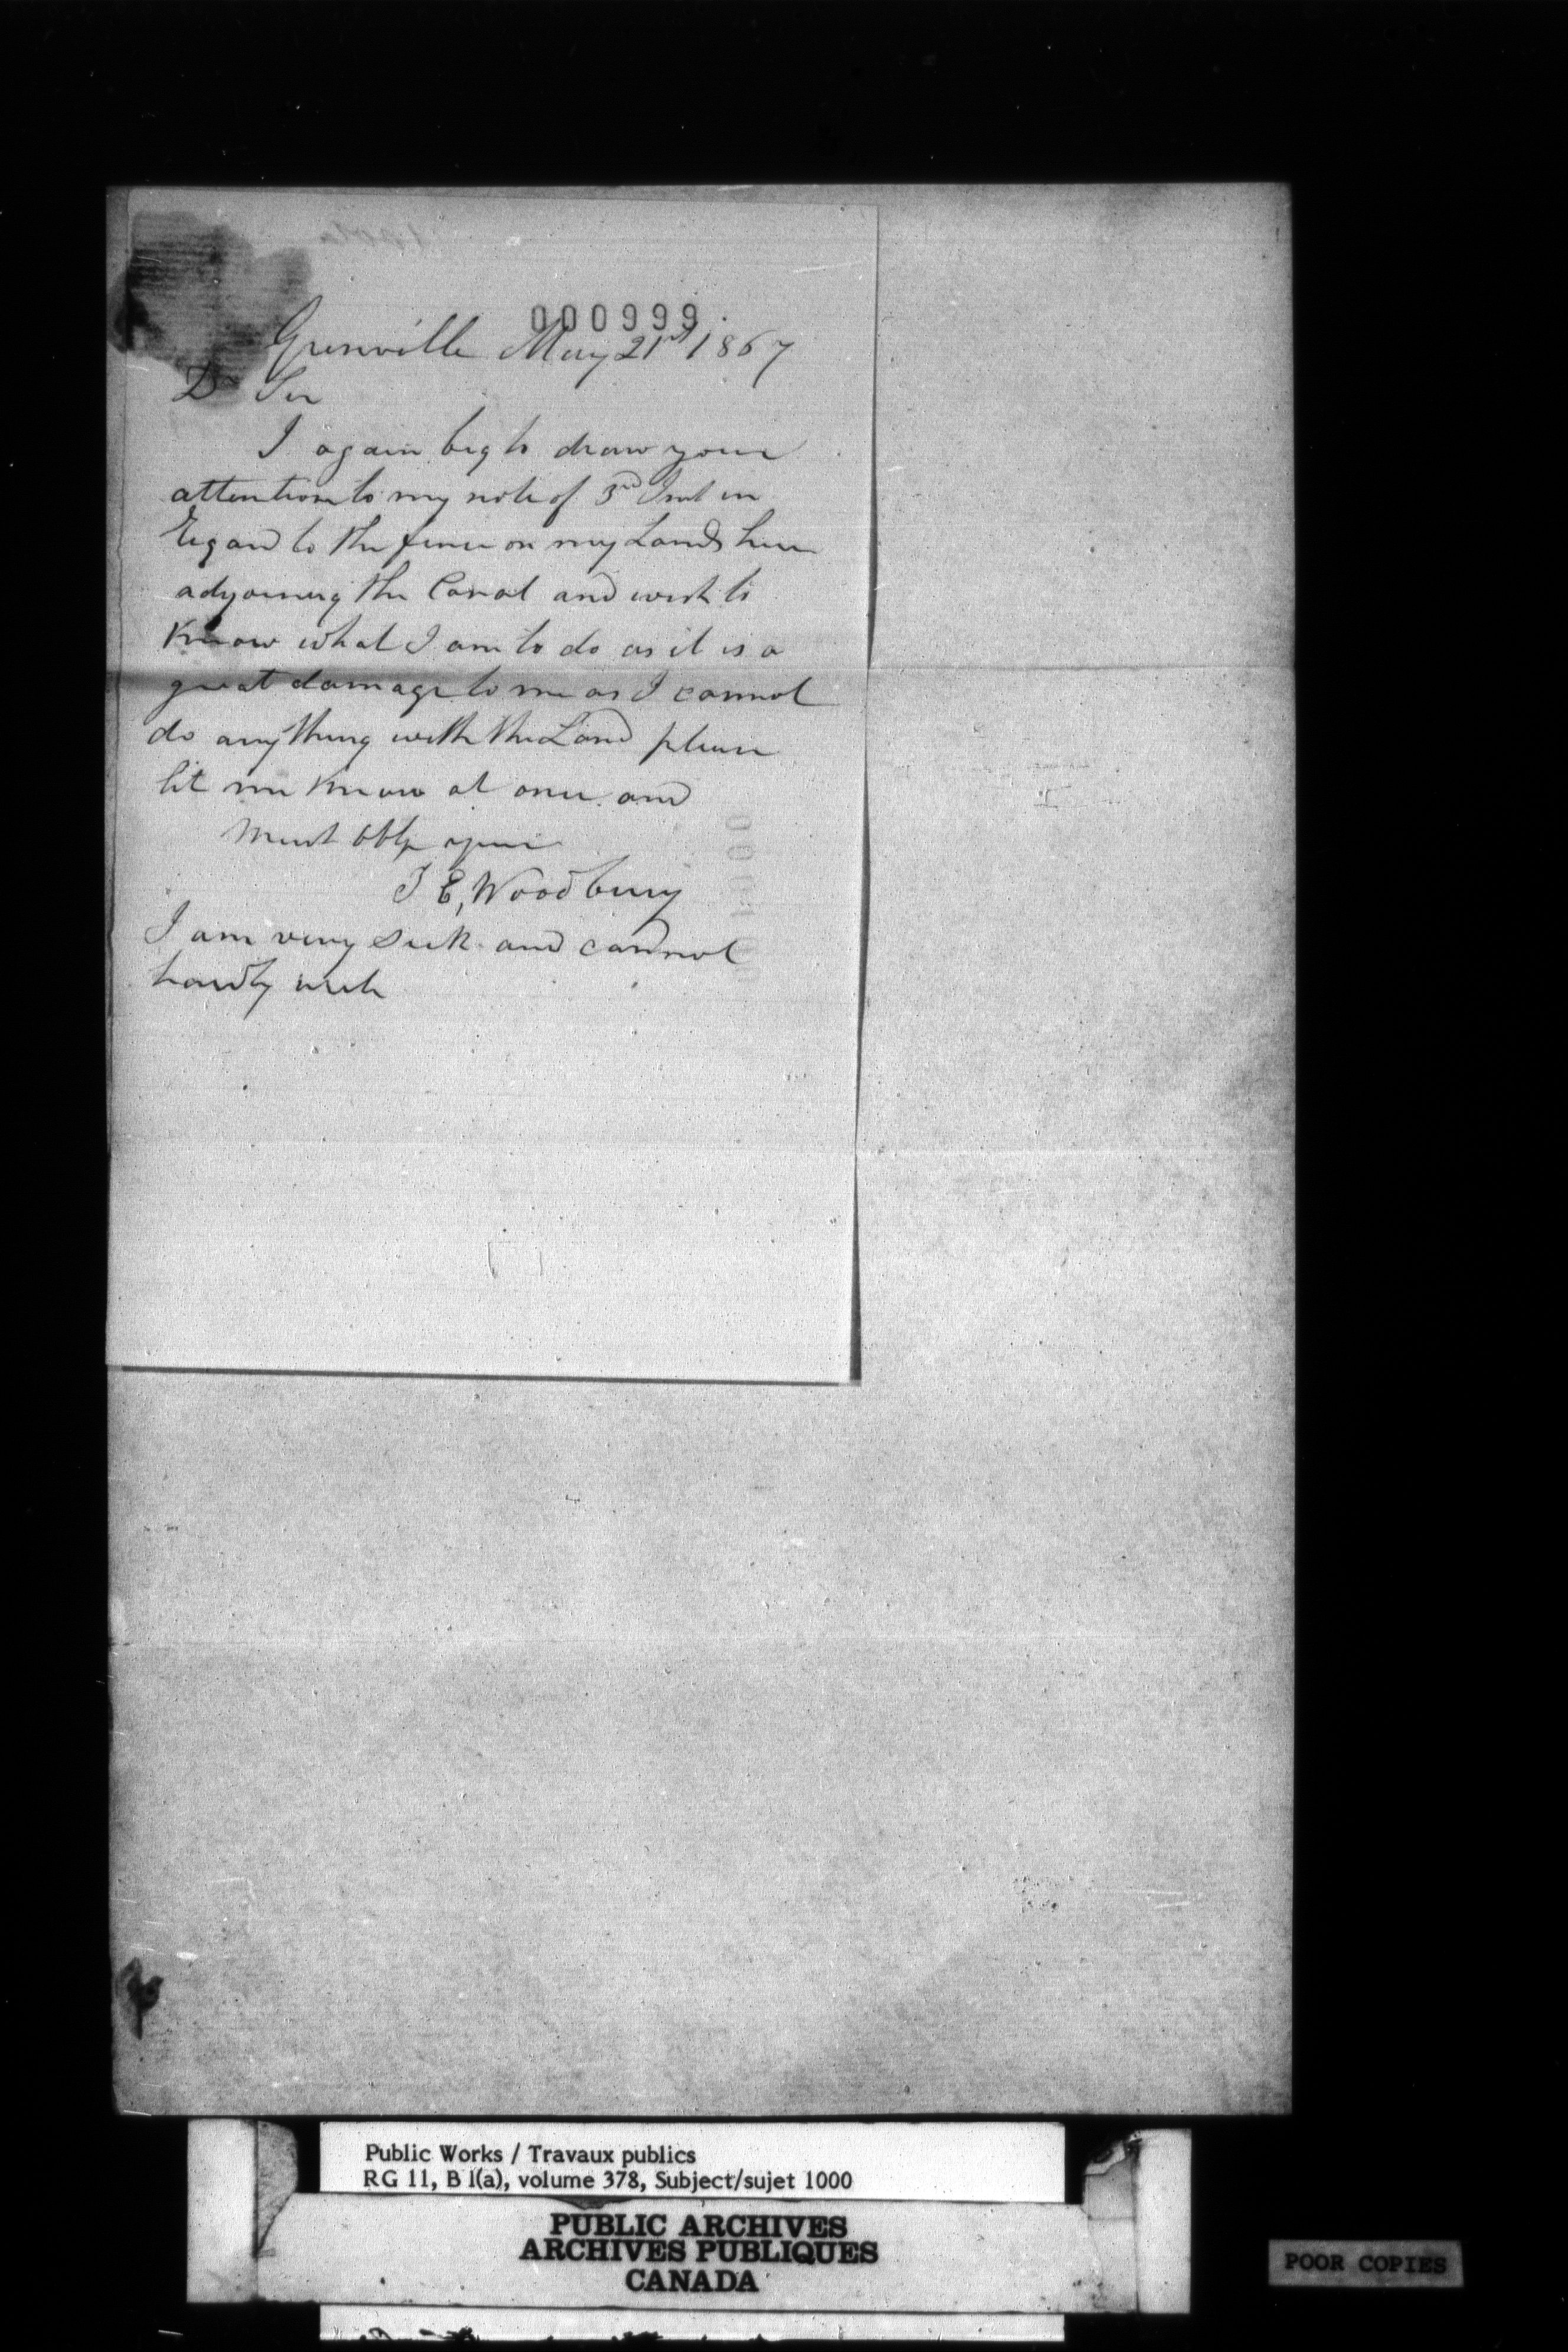 000999
Grenville May 21st 1867
Dr Sir
I again beg to draw your
attention to my note of 3rd Inst in
Regard to the fence on my Lands here
adjoining the Canal and wish to
Know what I am to do as it is a
great damage to me as I cannot
do any thing with the Land please
let me know at once and
Must oblg yours
T E, Woodbury
I am very sick and cannot
hardly write
Public Works / Travaux publics
RG 11, B 1(a), volume 378, Subject/sujet 1000
PUBLIC ARCHIVES
ARCHIVES PUBLIQUES
CANADA
POOR COPIES